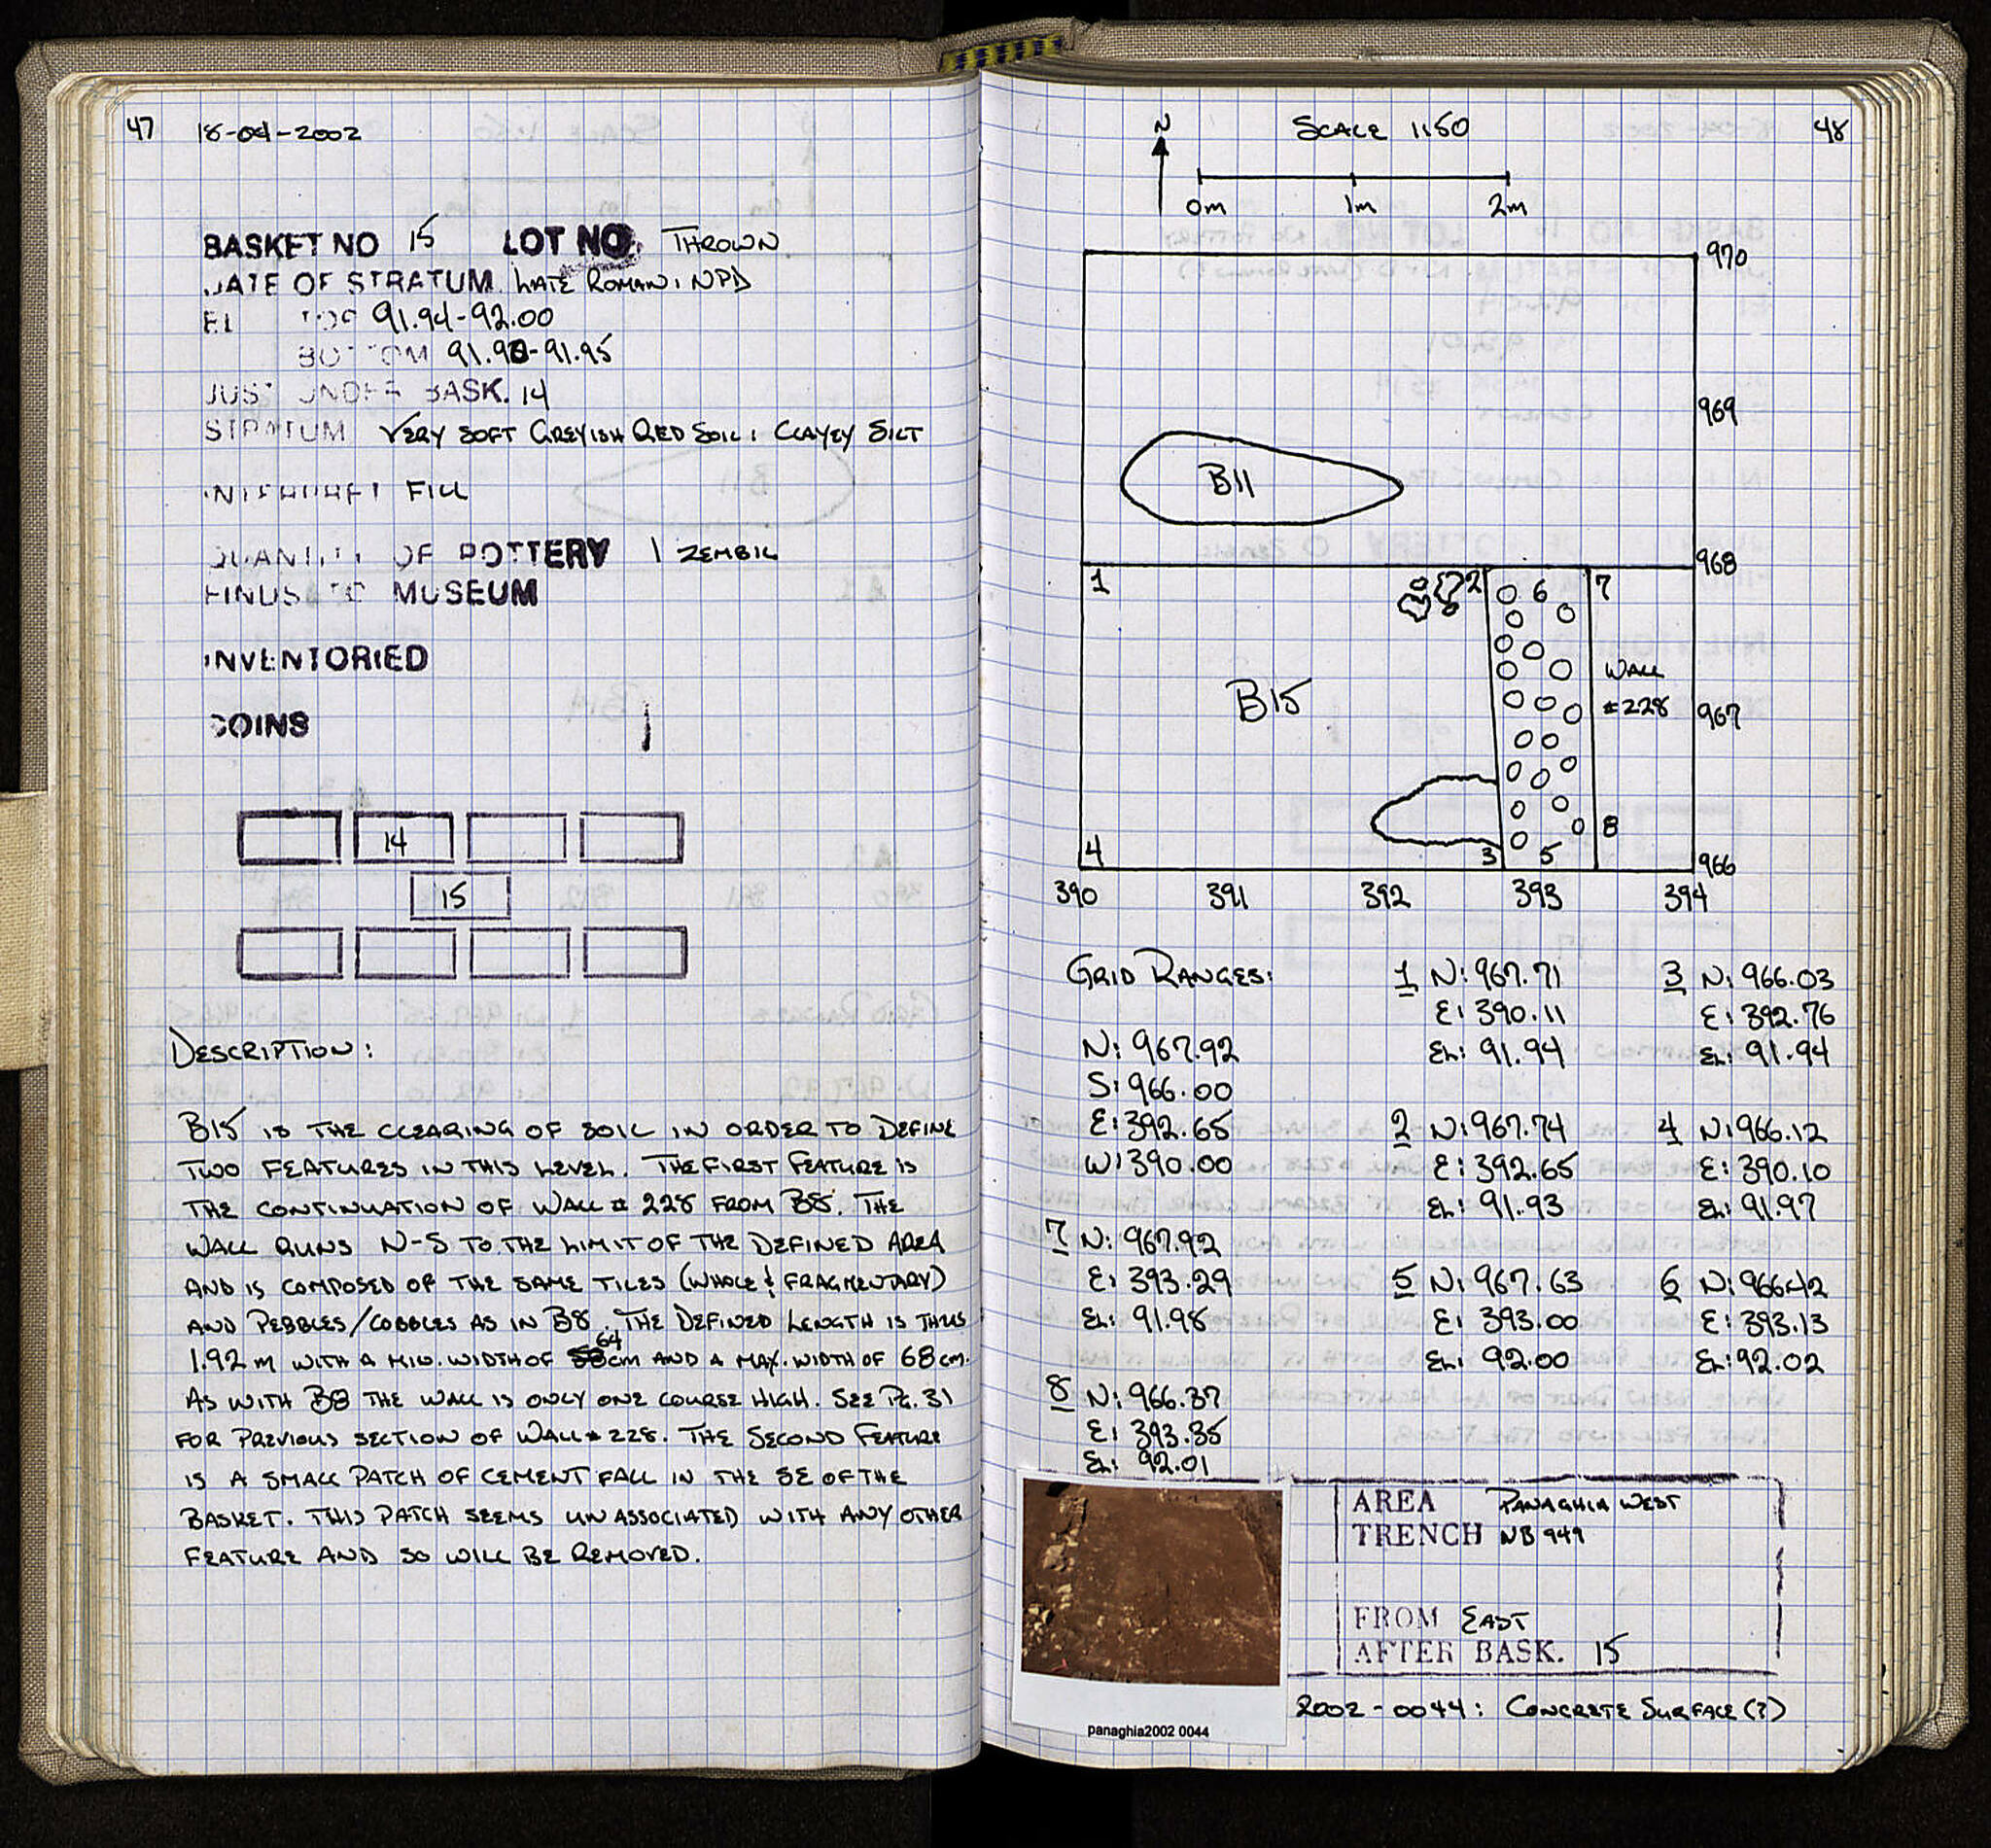 47 18-04-2002
BASKET NO 15 LOT NO. THROWN
DATE OF STRATUM. LATE ROMAN, NPD
EL TOP 91.94-92.00
BOTTOM 91.90-91.95
JUST UNDER BASK. 14
STRATUM VERY SOFT GREYISH RED SOIL; CLAYEY SILT
INTERPRET FILL
QUANTITY OF POTTERY 1 ZEMBIL
FINDS TO MUSEUM
INVENTORIED
COINS
14
15
DESCRIPTION:
B15 IS THE CLEARING OF SOIL IN ORDER TO DEFINE
TWO FEATURES IN THIS LEVEL. THE FIRST FEATURE IS
THE CONTINUATION OF WALL # 228 FROM B8. THE
WALL RUNS N-S TO THE LIMIT OF THE DEFINED AREA
AND IS COMPOSED OF THE SAME TILES (WHOLE & FRAGMENTARY)
AND PEBBLES/COBBLES AS IN B8. THE DEFINED LENGTH IS THUS
1.92 m WITH A MIN. WIDTH OF 64 cm AND A MAX. WIDTH OF 68 cm.
AS WITH B8 THE WALL IS ONLY ONE COURSE HIGH. SEE PG. 31
FOR PREVIOUS SECTION OF WALL # 228. THE SECOND FEATURE
IS A SMALL PATCH OF CEMENT FALL IN THE SE OF THE
BASKET. THIS PATCH SEEMS UNASSOCIATED WITH ANY OTHER
FEATURE AND SO WILL BE REMOVED.
N SCALE 1:50 48
0m 1m 2m
970
969
B11
968
1 2 6 7
WALL
B15 #228 967
8
4 3 5 966
390 391 392 393 394
GRID RANGES:
N: 967.92
S: 966.00
E: 392.65
W: 390.00
1 N: 967.71
E: 390.11
EL: 91.94
3 N: 966.03
E: 392.76
EL: 91.94
2 N: 967.74
E: 392.65
EL: 91.93
4 N: 966.12
E: 390.10
EL: 91.97
7 N: 967.92
E: 393.29
EL: 91.98
5 N: 967.63
E: 393.00
EL: 92.00
6 N: 966.42
E: 393.13
EL: 92.02
8 N: 966.37
E: 393.35
EL: 92.01
AREA PANAGHIA WEST
TRENCH NB 949
FROM EAST
AFTER BASK. 15
2002-0044: CONCRETE SURFACE (?)
panaghia2002 0044